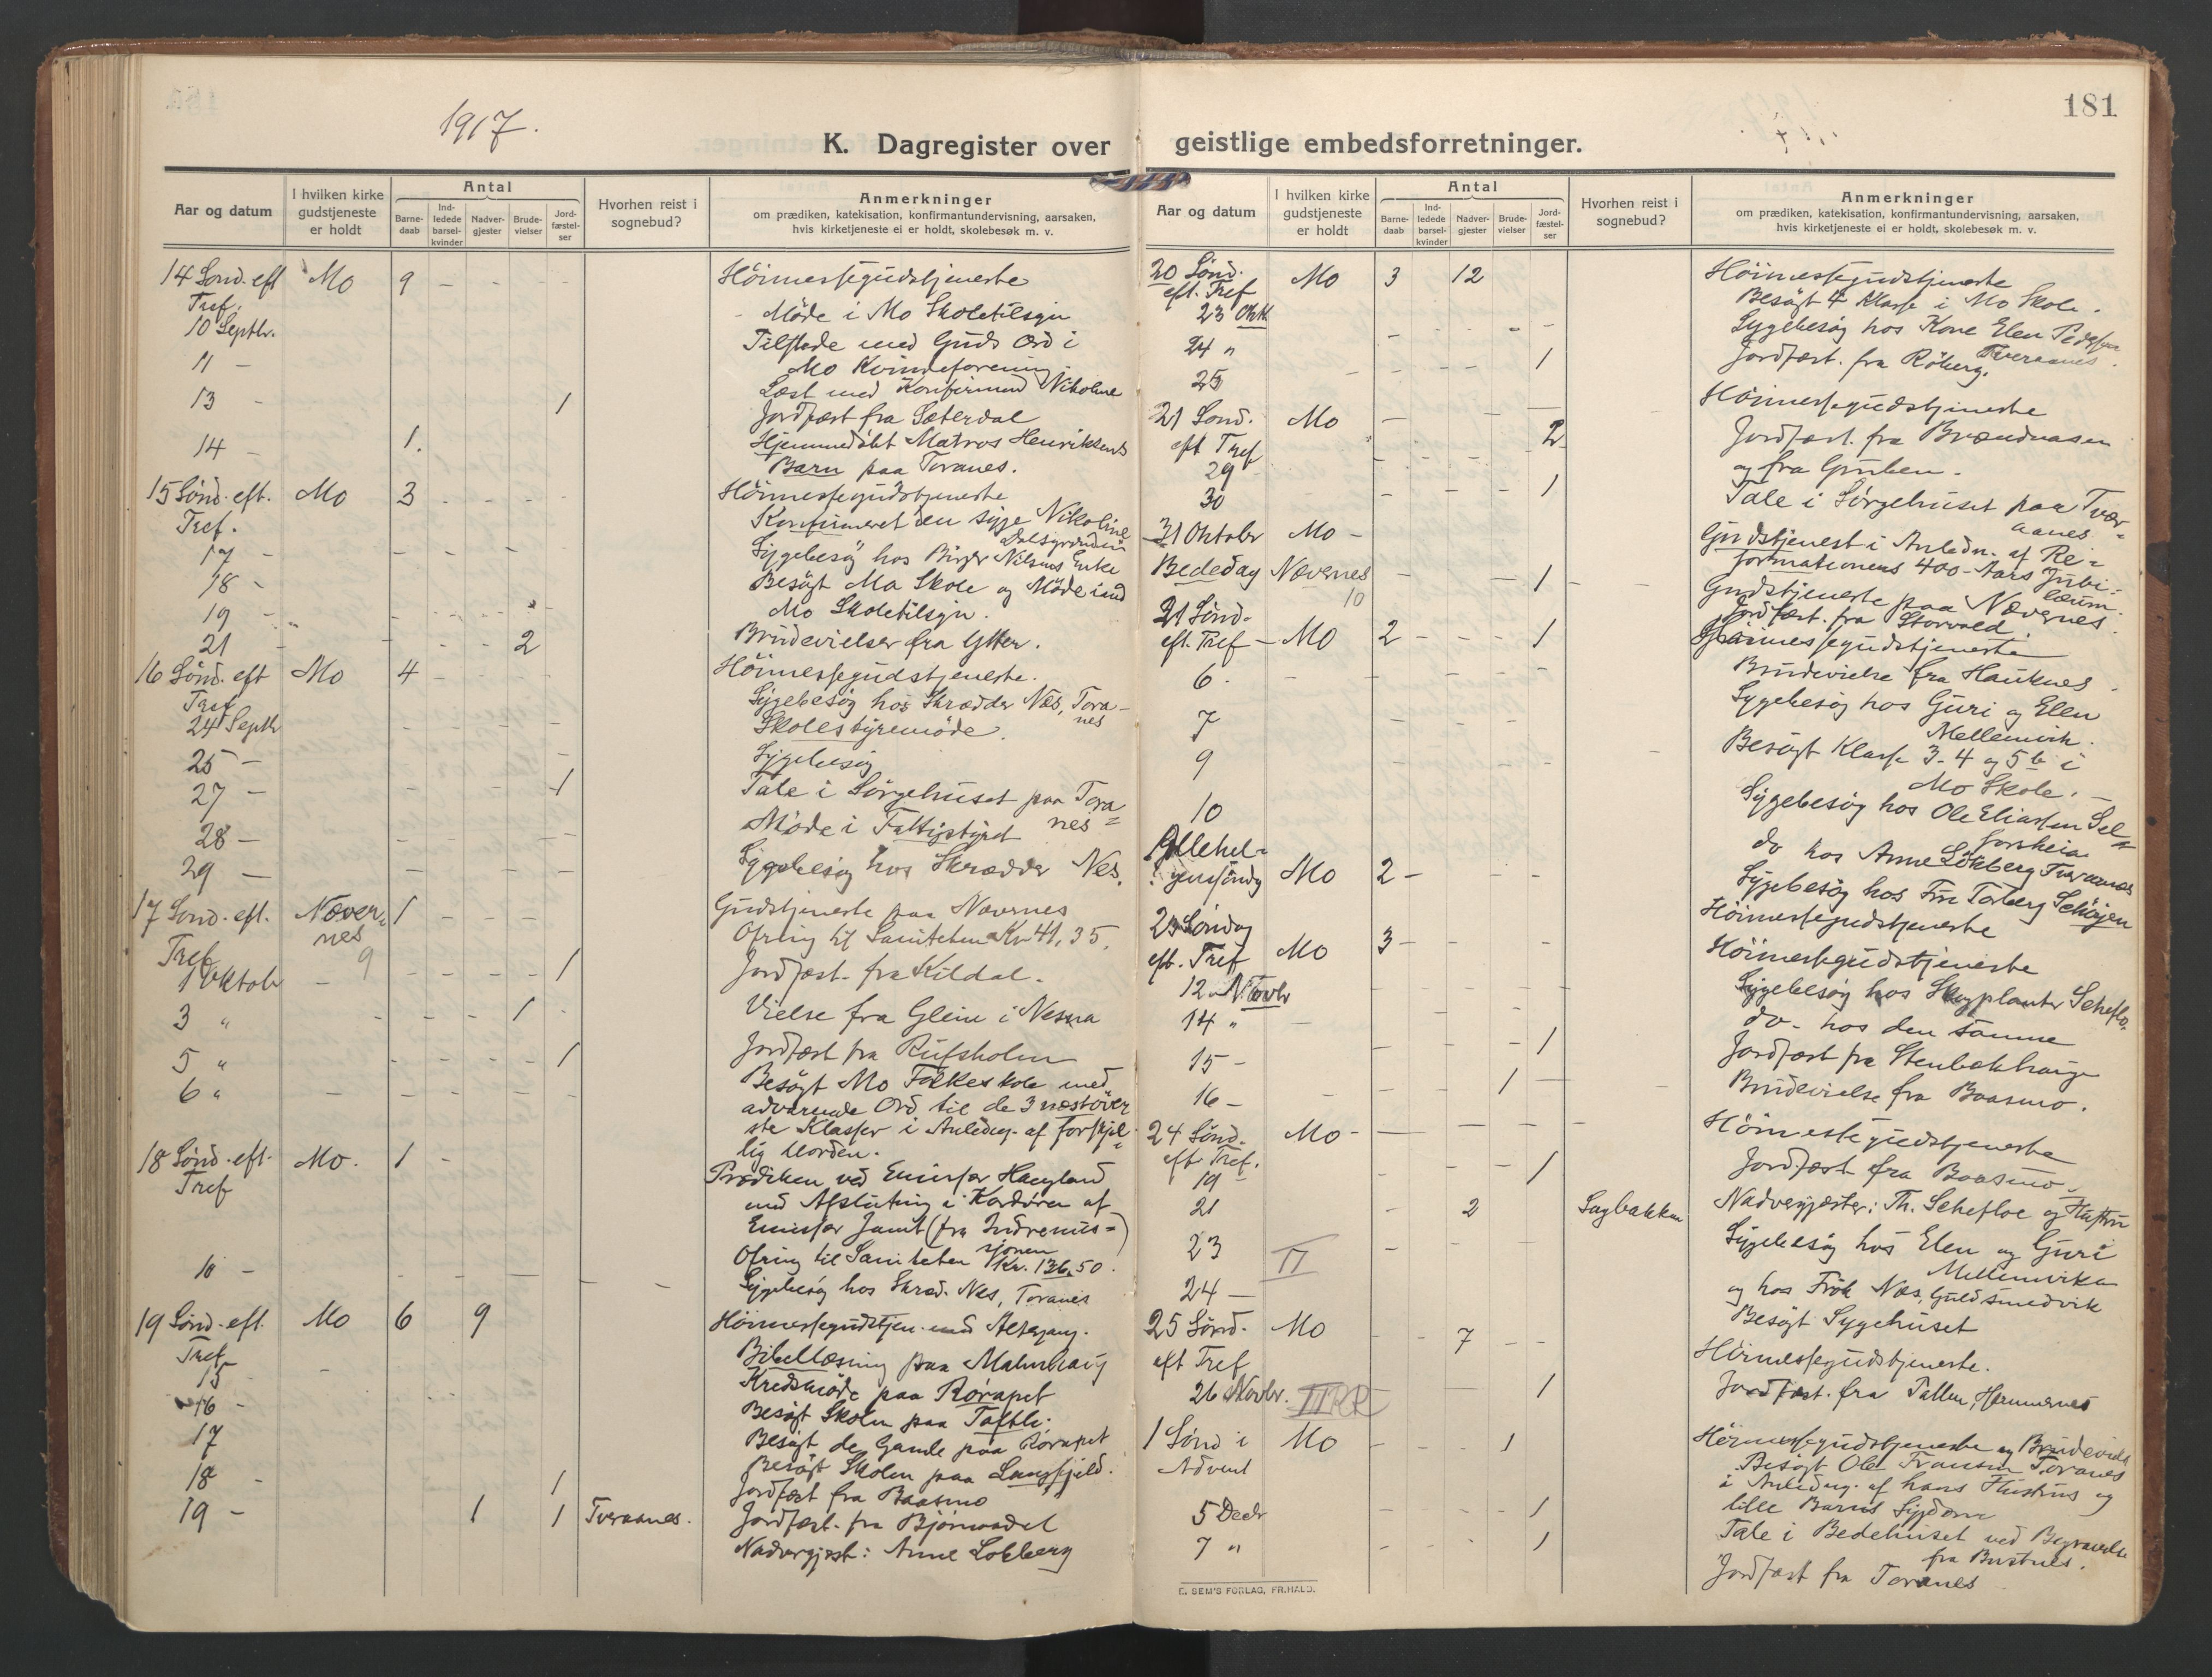 1917.
K. Dagregister over
Aar og datum
I hvilken kirke gudstjeneste er holdt
Antal
Barnedaab
Indledede barselkvinder
Nadvergjester
Brudevielser
Jordfæstelser
Hvorhen reist i sognebud?
Anmerkninger
om prædiken, katekisation, konfirmantundervisning, aarsaken,
hvis kirketjeneste ei er holdt, skolebesøk m. v.
14 Sond. eft Mo 9 - - - - Höimessegudstjeneste
Tref.
10 Septbr. - Möde i Mo Skoletilsyn
11 - Tilstede med Guds Ord i
Mo Kvindeforening
Læst med Konfirmand Nikoline
13 - 1 Jordfæst fra Sæterdal
14 - 1. Hjemmedöbt Matros Henriksens
Barn paa Toranes.
15 Sönd. eft. Mo 3 - - - - Höimessegudstjeneste
Tref. Konfirmeret den syge Nikoline
17 - Sygebesög hos Birger Nilsens Enke
18 - Besögt Mo Skole og Möde i
19 - Mo Skoletilsyn.
21 - - - 2 Brudevielser fra Ytter.
16 Sönd. eft Mo 4 - - - - Höimessegudstjeneste.
Tref Sygebesög hos Skrædder Næs, Tora-
nes
24 Septbr Skolestyremöde.
25 - Sygebesög
27 - 1 Tale i Sörgehuset paa Tora
nes
28 - Möde i Fattigstyret
29 - Sygebesög hos Skrædder Nes.
17 Sönd. eft. Næver- 1 - - - Gudstjeneste paa Nævernes
nes
Tref 9 Ofring til Saniteten Kr 41,35.
1 Oktob - - - - - 1 Jordfæst. fra Kildal.
3 " - - - 1 - Vielse fra Glein i Nesna
5 " - - - - 1 Jordfæst fra Rufsholm
6 " - - - - - Besögt Mo Folkeskole med
advarende Ord til de 3 næstöver
ste Klasser i Anledng. af forskjel-
lig Uorden.
18 Sönd. eft. Mo. 1 - Prædiken ved Emissær Haugland
Tref med Afslutning i Kordören af
Emissær Jamt (fra Indremis-
sjonen)
Ofring til Saniteten Kr. 136,50.
10 - Sygebesög hos Skræd. Nes, Toranes
19 Sönd. eft. Mo 6 9 Höimessegudstjen. med Altergang.
Tref
15 - Bibellæsning paa Malmhaug
16 - Kredsmöde paa Rörapet
Besögt Skolen paa Toftli.
17 Besögt de Gamle paa Rörapet
Besögt Skolen paa Langfjeld.
18 - 1 Jordfæst fra Baasmo
19 - 1 1 Tveraanes. Jordfæst. fra Björnaadal
Nadvergjæst: Anne Lökberg
181
geistlige embedsforretninger.
Aar og datum
I hvilken kirke gudstjeneste er holdt
Antal
Barnedaab
Indledede barselkvinder
Nadvergjester
Brudevielser
Jordfæstelser
Hvorhen reist i sognebud?
Anmerkninger
om prædiken, katekisation, konfirmantundervisning, aarsaken,
hvis kirketjeneste ei er holdt, skolebesøk m. v.
20 Sönd. Mo 3 12 Höimessegudstjeneste
eft. Tref
23 Oktb Besögt 4 Klasse i Mo Skole.
24 " Sygebesög hos Kone Elen
Tveraanes.
25 1 Jordfæst. fra Röberg.
21 Sond. Mo - - - Höimessegudstjeneste
eft Tref 2 Jordfæst. fra Brændaasen
29 og fra Gruben.
30 - - - 1 Tale i Sörgehuset paa Tver
aanes
31 Oktober Mo - Gudstjenest i Anledn. af Re-
formationens 400-Aars Jubi-
læum.
Bededag Nævernes - - 1 Gudstjeneste paa Nævernes.
10 Jordfæst. fra Storvold.
21 Sönd. Höimessegudstjeneste
eft. Tref - Mo 2 - - - 1 Brudevielse fra Hauknes.
6. Sygebesög hos Guri og Elen
7 Mellemvik.
9 Besögt Klasse 3-4 og 5b i
Mo Skole.
10 Sygebesög hos Ole Eliassen Sel-
forsheia
do hos Anne Lökberg Tveraanes
Allehel- Sygebesög hos Fru Torberg Schöjen
gensöndg Mo 2 - - - Höimessegudstjeneste
23 Söndag
eft. Tref Mo 3 - - - Höimessegudstjeneste
12 Novbr Sygebesög hos Skogplanter Scheflo.
14 " do. hos den samme
15 - - - 1 Jordfæst fra Stenbækhaug
16 - - 1 - Brudevielse fra Baasmo.
24 Sönd. Mo - Höimessegudstjeneste
eft. Tref.
19 - - - 1 Jordfæst fra Baasmo.
21 2 Sagbakken Nadvergjæster: Th. Schefloe og Hustru
23 II Sygebesög hos Elen og Guri
Mellemvika
24 - og hos Frök Næs, Guldsmedvik
Besögt Sygehuset
25 Sönd. Mo - - 7 - - Höimessegudstjeneste.
eft Tref
26 Novbr. III RR 1 Jordfæst. fra
1 Sönd i Mo - - - 1 Höimessegudstjeneste og Brudeviels
Advent Besögt Ole Fransen Toranes
i Anledng. af hans Hustrus og
lille Barns Sygdom
5 Decbr - - - 1 Tale i Bedehuset ved Begravelse
fra Bustnes.
7 " - - - 1 Jordfæst fra Toranes
E. SEM'S FORLAG, FR.HALD.